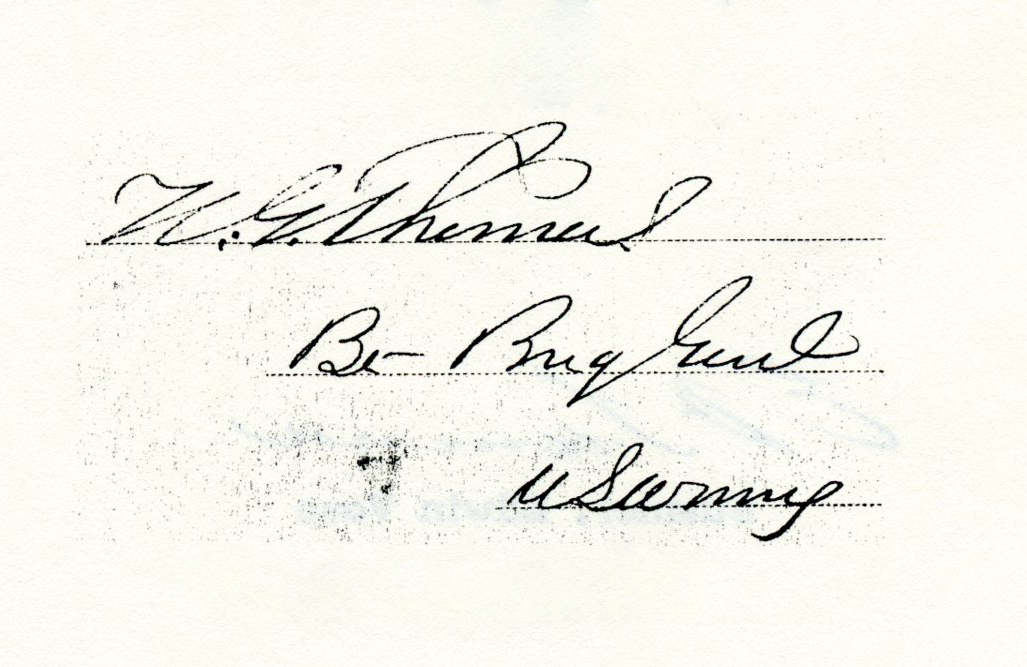 H. G. Thomas
Bt- Brig Genl
U S Army